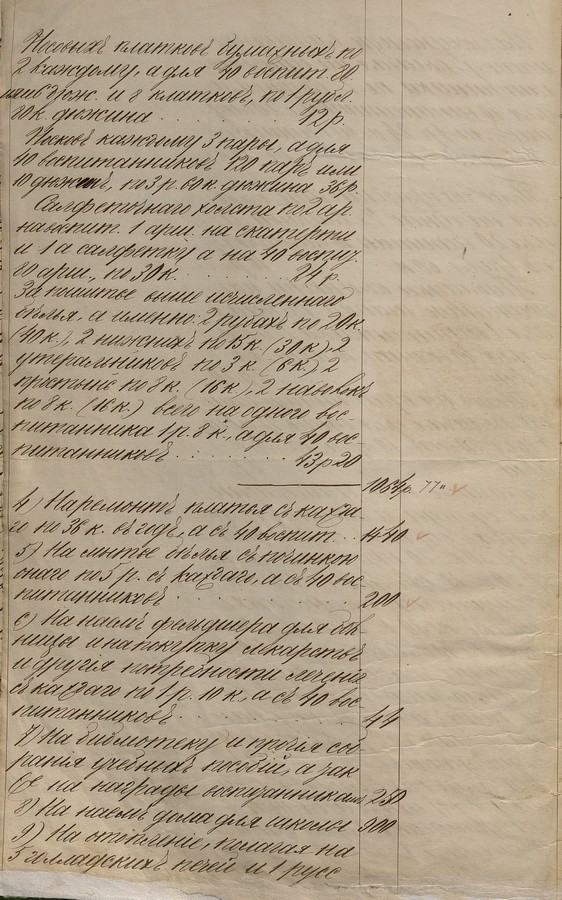 Носовыхъ платковъ бумажныхъ по
2 каждому, а для 40 воспит. 80
или 6 дюж. и 8 платковъ, по 1 рубл.
80 к. дюжина . . . . . 12 р.
Носковъ каждому 3 пары, а для
40 воспитанниковъ 120 паръ или
10 дюжинъ, по 3 р. 60 к. дюжина 36 р.
Салфеточнаго холста по 2 ар.
на воспит. 1 арш. на скатерти
и 1 а салфетку а на 40 воспит.
80 арш., по 30 к. . . . . 24 р.
За шитье выше исчисленнаго
бѣлья, а именно: 2 рубахъ по 20 к.
(40 к.), 2 нижнихъ по 15 к. (30 к.) 2
утиральниковъ по 3 к. (6 к.) 2
простынь по 8 к. (16 к.), 2 наволокъ
по 8 к. (16 к.) всего на одного вос-
питанника 1 р. 8 к., а для 40 вос-
питанниковъ . . . . . . . 43 р 20
1084 р. 77 "
4) На ремонтъ платья съ кажда-
го по 36 к. въ годъ, а съ 40 воспит. . . 14 40
5) На мытье бѣлья съ починкою
онаго по 5 р. съ каждаго, а съ 40 вос-
питанниковъ . . . . . . . 200
6) На наемъ фельдшера для боль-
ницы и на покупку лекарствъ
и другія потребности леченія
съ каждаго по 1 р. 10 к., а съ 40 вос-
питанниковъ . . . . . . . 44
7) На библіотеку и прочія соб-
ранія учебныхъ пособій, а так
же на награды воспитанникамъ 250
8) На наемъ дома для школы 300
9) На отопленіе, полагая на
5 голландскихъ печей и 1 русс